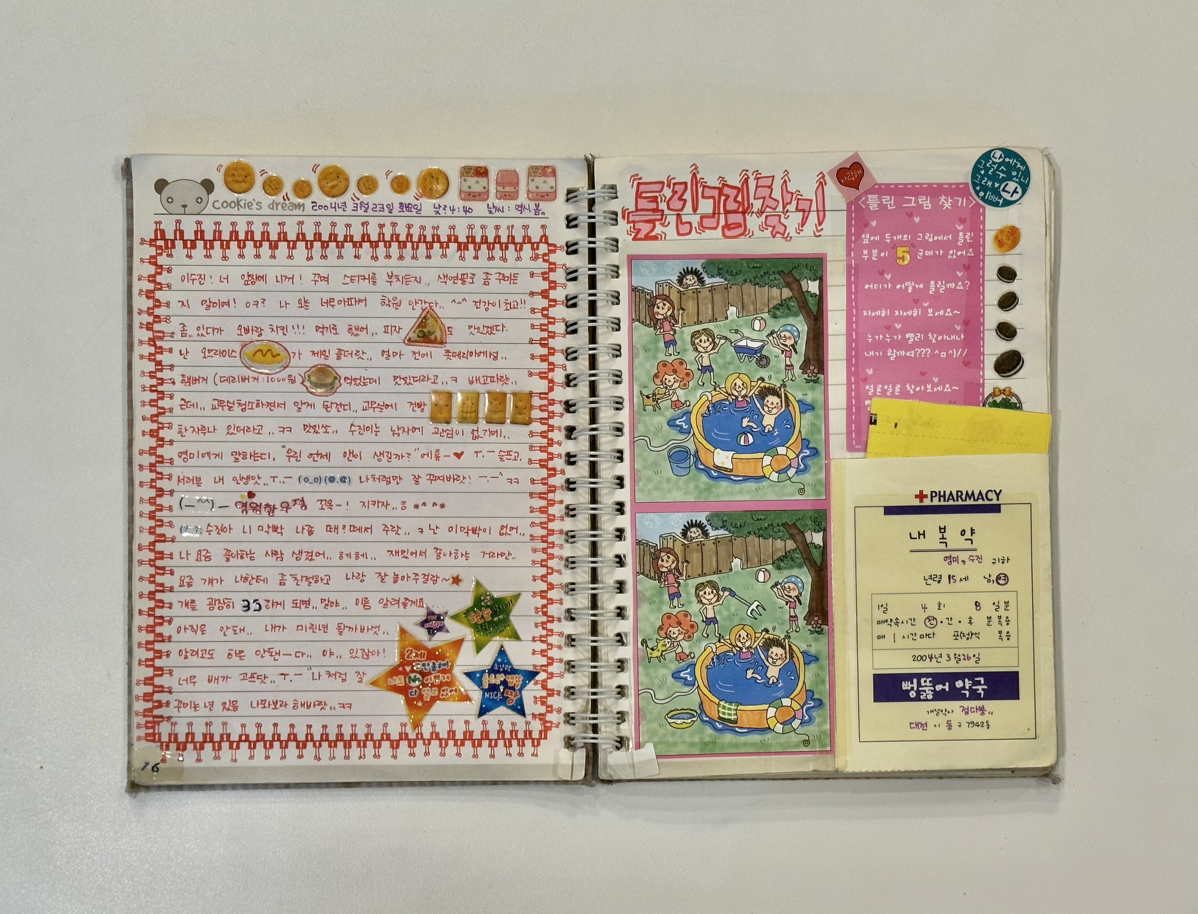 cookie's dream 2004년 3월 23일 화요일 낮:4:40 날씨: 역시 봄..
이수진! 너 앞장에 니꺼! 꾸며 스티커를 붙치든지.. 색연필로 좀 꾸며
지 말이여! 어? 나 오늘 너무 아파서 학원 안갔다.. ^-^ 건강이 최고!!
좀, 있다가 오빠랑 치킨!!! 먹기로 했어,, 피자 도 맛있겠다.
난 오므라이스 가 제일 좋더랏.. 얼마 전에 롯데리아에서..
햄버거 (데리버거:1000원) 먹었는데 맛있더라고..ㅋ 배고파랏..
근데.. 교무실청소하면서 알게 된건디.. 교무실에 건빵
한자루나 있더라고..ㅋㅋ 맛있쏘.. 수진이는 남자에 관심이 없기에..
영미에게 말하는디.. "우린 언제 앤이 생길까?" 에휴-♥ ㅜ.ㅡ 슬프고,
나처럼만 잘 꾸며바랏!
영원한 우정 꼬옥-! 지키자..
수진아 니 이마빡 나좀 때
나 요즘 좋아하는 사람 생겼어.. 헤헤.. 재밌어서 좋아하는 거라만..
요즘 걔가 나한테 좀 친절하고 나랑 잘 놀아주걸랑~
걔를 굉장히 좋아하게 되면.. 말야.. 이름 알려줄게요
아직은 안돼.. 내가 미련년 될까바섯..
알려고도 하믄 안돼ㅡ다.. 야.. 있잖아!
너무 배가 고프닷..ㅜ.ㅡ "나처럼 잘
꾸미는 년 있음 나와보라 해바랏..ㅋㅋ
NICE
16
틀린그림찾기
사랑해
<틀린 그림 찾기>
옆에 두개의 그림에서 틀린
부분이 5 군데가 있어요
어디가 어떻게 틀릴까요?
자세히 자세히 보세요~
누가누가 빨리 찾아내나
내기 할까여??? ^ㅁ^)//
얼른얼른 찾아보세요~
PHARMACY
내 복 약
영미, 수진 귀하
년령 15 세 남,여
1일 4 회 8 일분
매약속시간 전·간·후 분복용
매 1 시간마다 포(정)식 복용
2004년 3월 26일
뻥뚫어 약국
대전 시 동 구 7942동